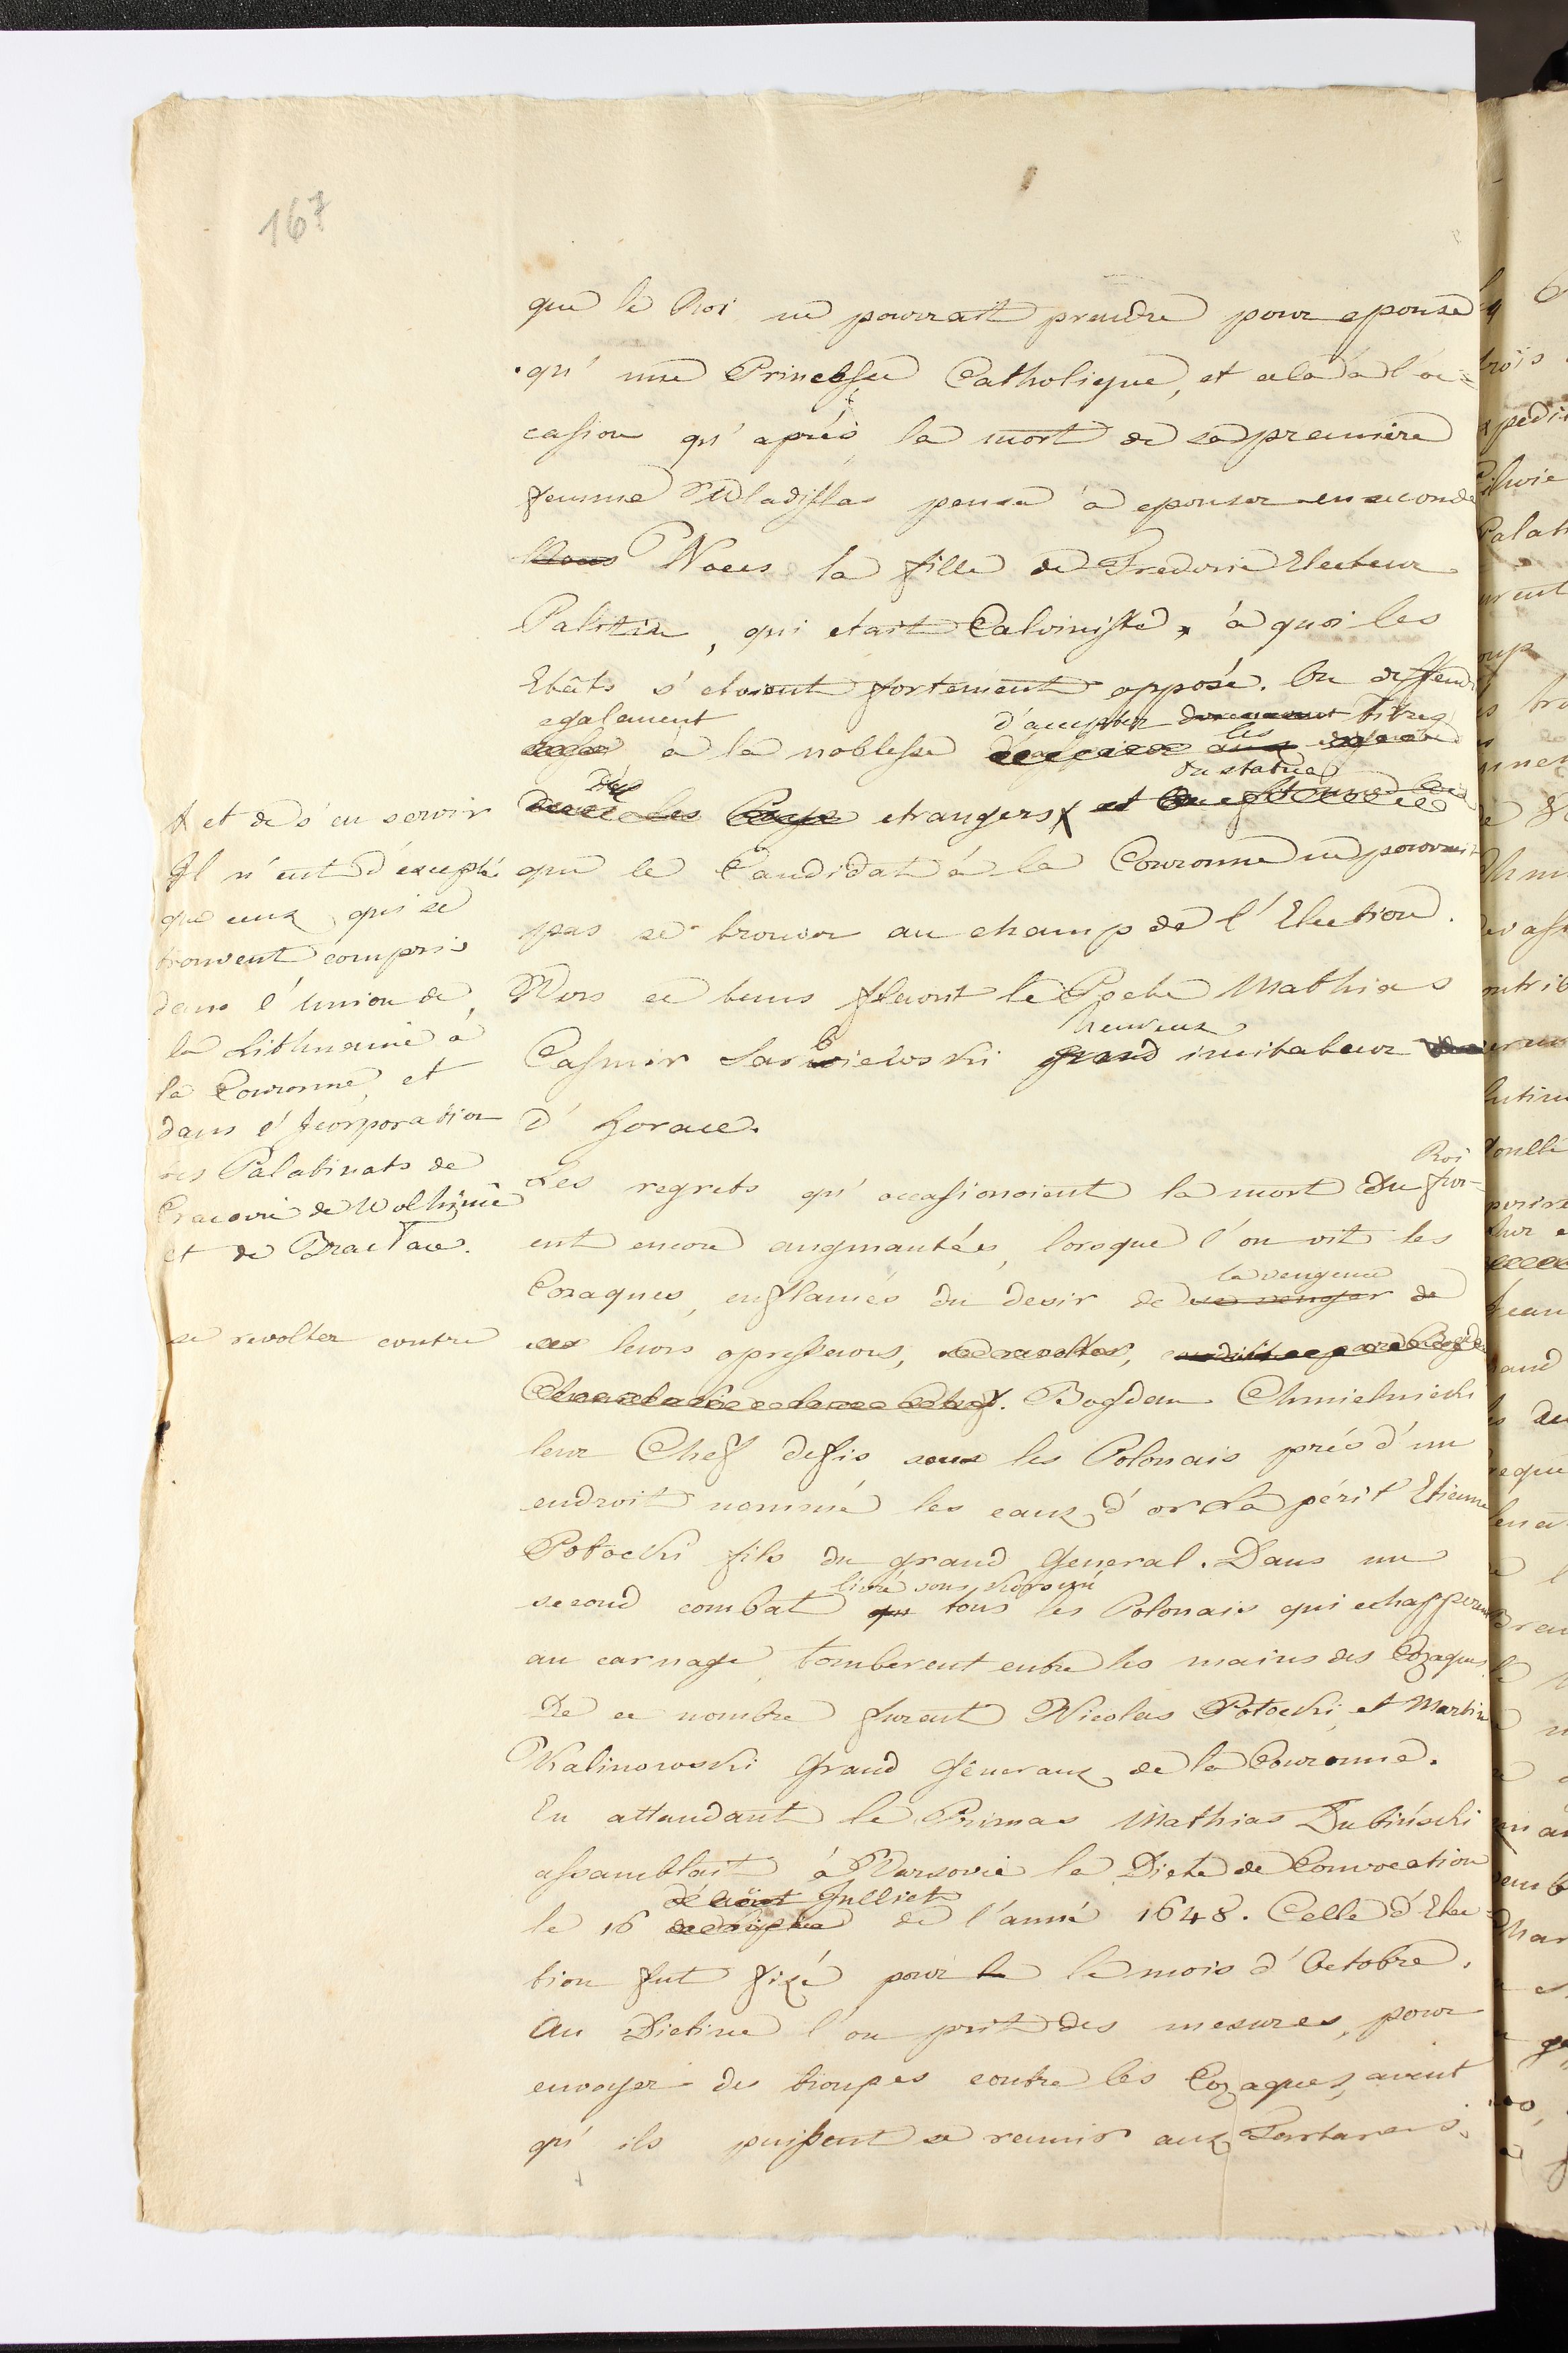 167
que le Roi ne pourrait prendre pour epouse
qu' une Princesse Catholique, et cela à l'oc=
casion qu'aprés la mort de sa premiere
femme Wladislas pensa à epouser en seconde
Noces la fille de Frederic Electeur
Palatin, qui etait Calviniste, à quoi les
Etâts s'etoient fortement opposé. On deffend
egalement à la noblesse d'accepter les titres
des etrangers
+ et de s'en servir
Il n'eut d'excepté
que ceux qui se
trouvent compris
dans l'Union de
la Lithuanie à
la Couronne, et
dans l'Icorporation
des Palatinats de
Cracovie de Wolhynie
et de Braclaw.
On statua
que le Candidat à la Couronne ne pourrait
pas se trouver au champ de l'Election.
Vers ce tems fleurit le Poete Mathias
Casmir Sarbielwski heureux imitateur
d'Horace.
Les regrets qu'occasionoient la mort du Roi fur-
ent encore augmantées, lorsque l'on vit les
Cozaques, enflamés du desir de la vengence
se revolter contre
leurs opresseurs, Bogdan Chmielnicki
leur Chef defis les Polonais prés d'un
endroit nommé les eaux d'or. Là périt Etienne
Potocki fils du grand General. Dans un
second combat livré sous Korsuń tous les Polonais qui echapperent
au carnage, tomberent entre les mains des Cozaques.
De ce nombre furent Nicolas Potocki et Martin
Kalinowski Grand Géneraux de la Couronne.
En attandant le Primas Mathias Łubiński
assamblait à Varsovie la Diete de Convocation
le 16 Julliet de l'anné 1648. Celle d'Elec-
tion fut fixé pour le mois d'Octobre.
Au Dietine l'on prit des mesures, pour
envoyer des troupes contre les Cozaques, avant
qu' ils puissent se reunir aux Tartares.